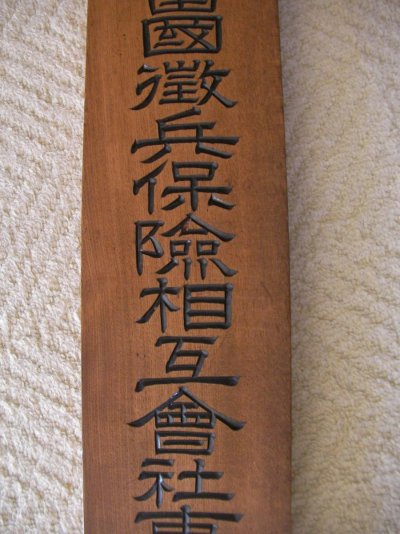 國徵兵保險相互會社